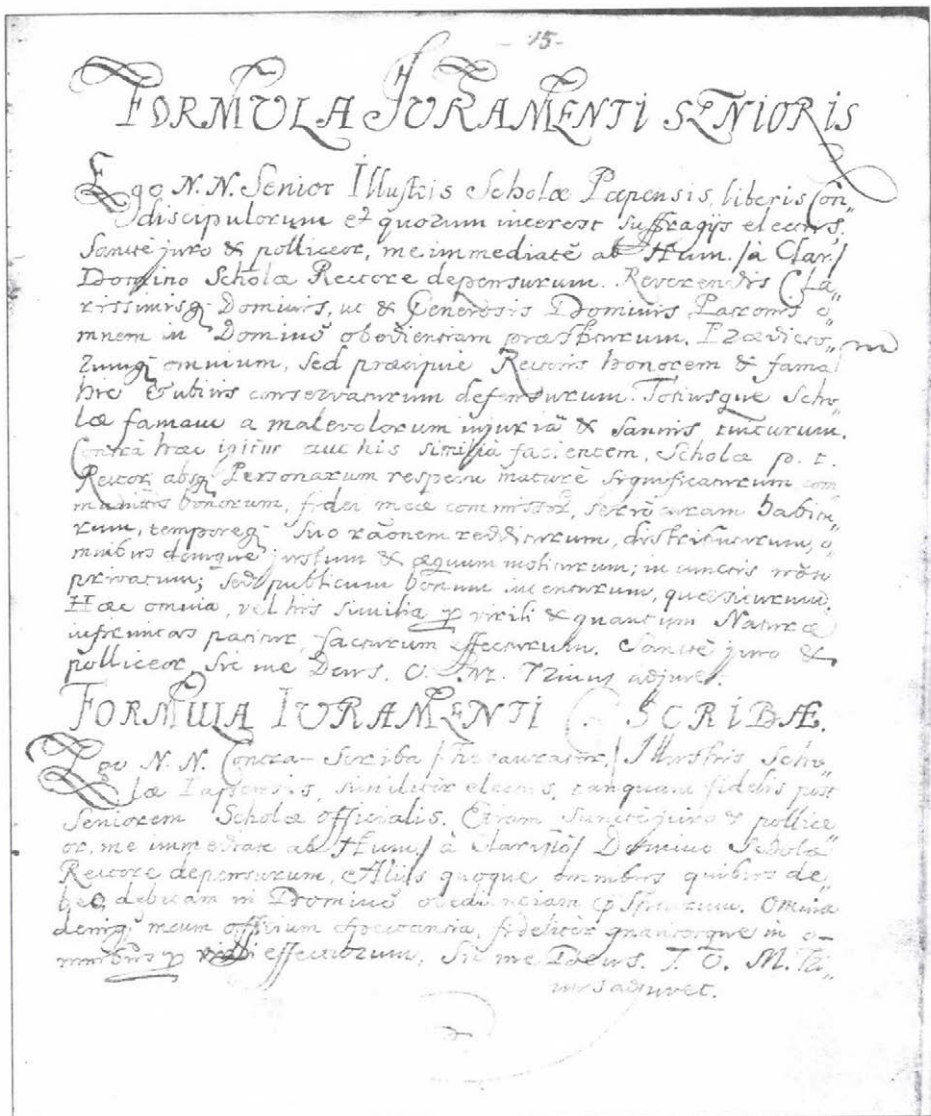 -15-
FORMULA JURAMENTI SENIORIS
Ego N. N. Senior Illustris Scholæ Papensis, liberis Con„
discipulorum et quorum interest suffragijs electus,
Sanctè juro & polliceor, me immediatè ab Hum. /à Clar./
Domino Scholæ Rectore depensurum. Reverendis Cla„
rissimisq; Dominis, ut & Generosis Dominis Patronis o„
mnem in Dominô obedientiam præstiturum. Prædicto„
rumq; omnium, sed præcipuè Rectoris honorem & famam
hic & ubivis conservaturum defensurum. Totiusque Scho„
læ famam a malevolorum injuriâ & sannis tuiturum.
Contrà hæc igitur aut his similia facientem, Scholæ p. t.
Rectori absq; Personarum respectu maturè significaturum com
munitatis bonorum, fidei meæ commissor, curam habitu„
rum, temporeq; suo rãonem redditurum, distributurum, o„
mnibus denique justum & æquum; in cunctis nõn
privatum; sed publicum bonum intenturum, quæsiturum.
Hæc omnia, vel his similia p virili & quantum Naturæ
infirmitas patitur, facturum effecturum. Sanctè juro &
polliceor, Sic me Deus. O. M. Trinus adjuvet.
FORMULA IURAMENTI C. SCRIBÆ.
Ego N. N. Contra-scriba /Thesaurarius,/ Illustris Scho„
læ Papensis, similiter electus, tanquam fidelis post
Seniorem Scholæ officialis. Etiam Sanctè juro & pollice
or, me immediatè ab Hum./ à Clarissõ/ Domino Scholæ
Rectore depensurum, Aliis quoque omnibus quibus de„
beo, debitam in Dominô obedientiam pstiturum. Omnia
deniq; meum officium spectantia, fideliter in o–
mnibus p virili effecturum, Sic me Deus. T. O. M. Tri„
nus adjuvet.